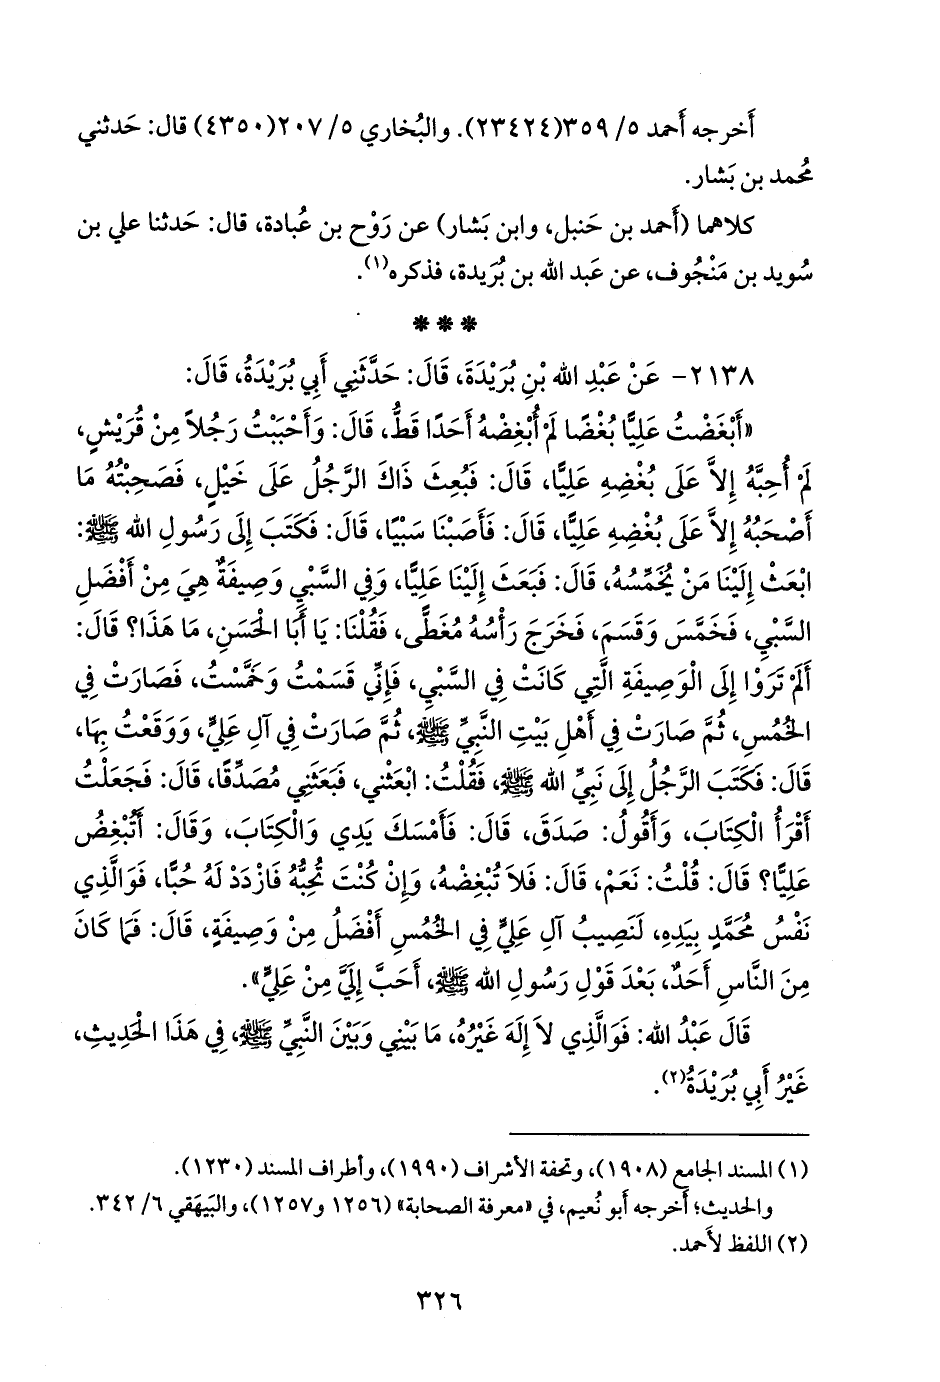 أَخرجه أَحمد ٥/ ٣٥٩(٢٣٤٢٤). والبُخاري ٥/ ٢٠٧(٤٣٥٠) قال: حَدثني
مُحمد بن بَشار.
كلاهما (أَحمد بن حَنبل، وابن بَشار) عن رَوْح بن عُبادة، قال: حَدثنا علي بن
سُويد بن مَنْجُوف، عن عَبد الله بن بُرَيدة، فذكره(١).
***
٢١٣٨- عَنْ عَبْدِ الله بْنِ بُرَيْدَةَ، قَالَ: حَدَّثَنِي أَبِي بُرَيْدَةُ، قَالَ:
«أَبْغَضْتُ عَلِيًّا بُغْضًا لَمْ أُبْغِضْهُ أَحَدًا قَطُّ، قَالَ: وَأَحْبَبْتُ رَجُلاً مِنْ قُرَيْشٍ،
لَمْ أُحِبَّهُ إِلاَّ عَلَى بُغْضِهِ عَلِيًّا، قَالَ: فَبُعِثَ ذَاكَ الرَّجُلُ عَلَى خَيْلٍ، فَصَحِبْتُهُ مَا
أَصْحَبُهُ إِلاَّ عَلَى بُغْضِهِ عَلِيًّا، قَالَ: فَأَصَبْنَا سَبْيًا، قَالَ: فَكَتَبَ إِلَى رَسُولِ الله ﷺ:
ابْعَثْ إِلَيْنَا مَنْ يُخَمِّسُهُ، قَالَ: فَبَعَثَ إِلَيْنَا عَلِيًّا، وَفِي السَّبْيِ وَصِيفَةٌ هِيَ مِنْ أَفْضَلِ
السَّبْيِ، فَخَمَّسَ وَقَسَمَ، فَخَرَجَ رَأْسُهُ مُغَطًّى، فَقُلْنَا: يَا أَبَا الْحَسَنِ، مَا هَذَا؟ قَالَ:
أَلَمْ تَرَوْا إِلَى الْوَصِيفَةِ الَّتِي كَانَتْ فِي السَّبْيِ، فَإِنِّي قَسَمْتُ وَخَمَّسْتُ، فَصَارَتْ فِي
الْخُمُسِ، ثُمَّ صَارَتْ فِي أَهْلِ بَيْتِ النَّبِيِّ ﷺ، ثُمَّ صَارَتْ فِي آلِ عَلِيٍّ، وَوَقَعْتُ بِهَا،
قَالَ: فَكَتَبَ الرَّجُلُ إِلَى نَبِيِّ الله ﷺ، فَقُلْتُ: ابْعَثْنِي، فَبَعَثَنِي مُصَدِّقًا، قَالَ: فَجَعَلْتُ
أَقْرَأُ الْكِتَابَ، وَأَقُولُ: صَدَقَ، قَالَ: فَأَمْسَكَ يَدِي وَالْكِتَابَ، وَقَالَ: أَتُبْغِضُ
عَلِيًّا؟ قَالَ: قُلْتُ: نَعَمْ، قَالَ: فَلاَ تُبْغِضْهُ، وَإِنْ كُنْتَ تُحِبُّهُ فَازْدَدْ لَهُ حُبًّا، فَوَالَّذِي
نَفْسُ مُحَمَّدٍ بِيَدِهِ، لَنَصِيبُ آلِ عَلِيٍّ فِي الْخُمُسِ أَفْضَلُ مِنْ وَصِيفَةٍ، قَالَ: فَمَا كَانَ
مِنَ النَّاسِ أَحَدٌ، بَعْدَ قَوْلِ رَسُولِ الله ﷺ، أَحَبَّ إِلَيَّ مِنْ عَلِيٍّ».
قَالَ عَبْدُ الله: فَوَالَّذِي لاَ إِلَهَ غَيْرُهُ، مَا بَيْنِي وَبَيْنَ النَّبِيِّ ﷺ، فِي هَذَا الْحَدِيثِ،
غَيْرُ أَبِي بُرَيْدَةُ(٢).
(١) المسند الجامع (١٩٠٨)، وتحفة الأشراف (١٩٩٠)، وأطراف المسند (١٢٣٠).
والحديث؛ أخرجه أبو نُعيم، في «معرفة الصحابة» (١٢٥٦ و١٢٥٧)، والبَيهَقي ٦/ ٣٤٢.
(٢) اللفظ لأَحمد.
٣٢٦